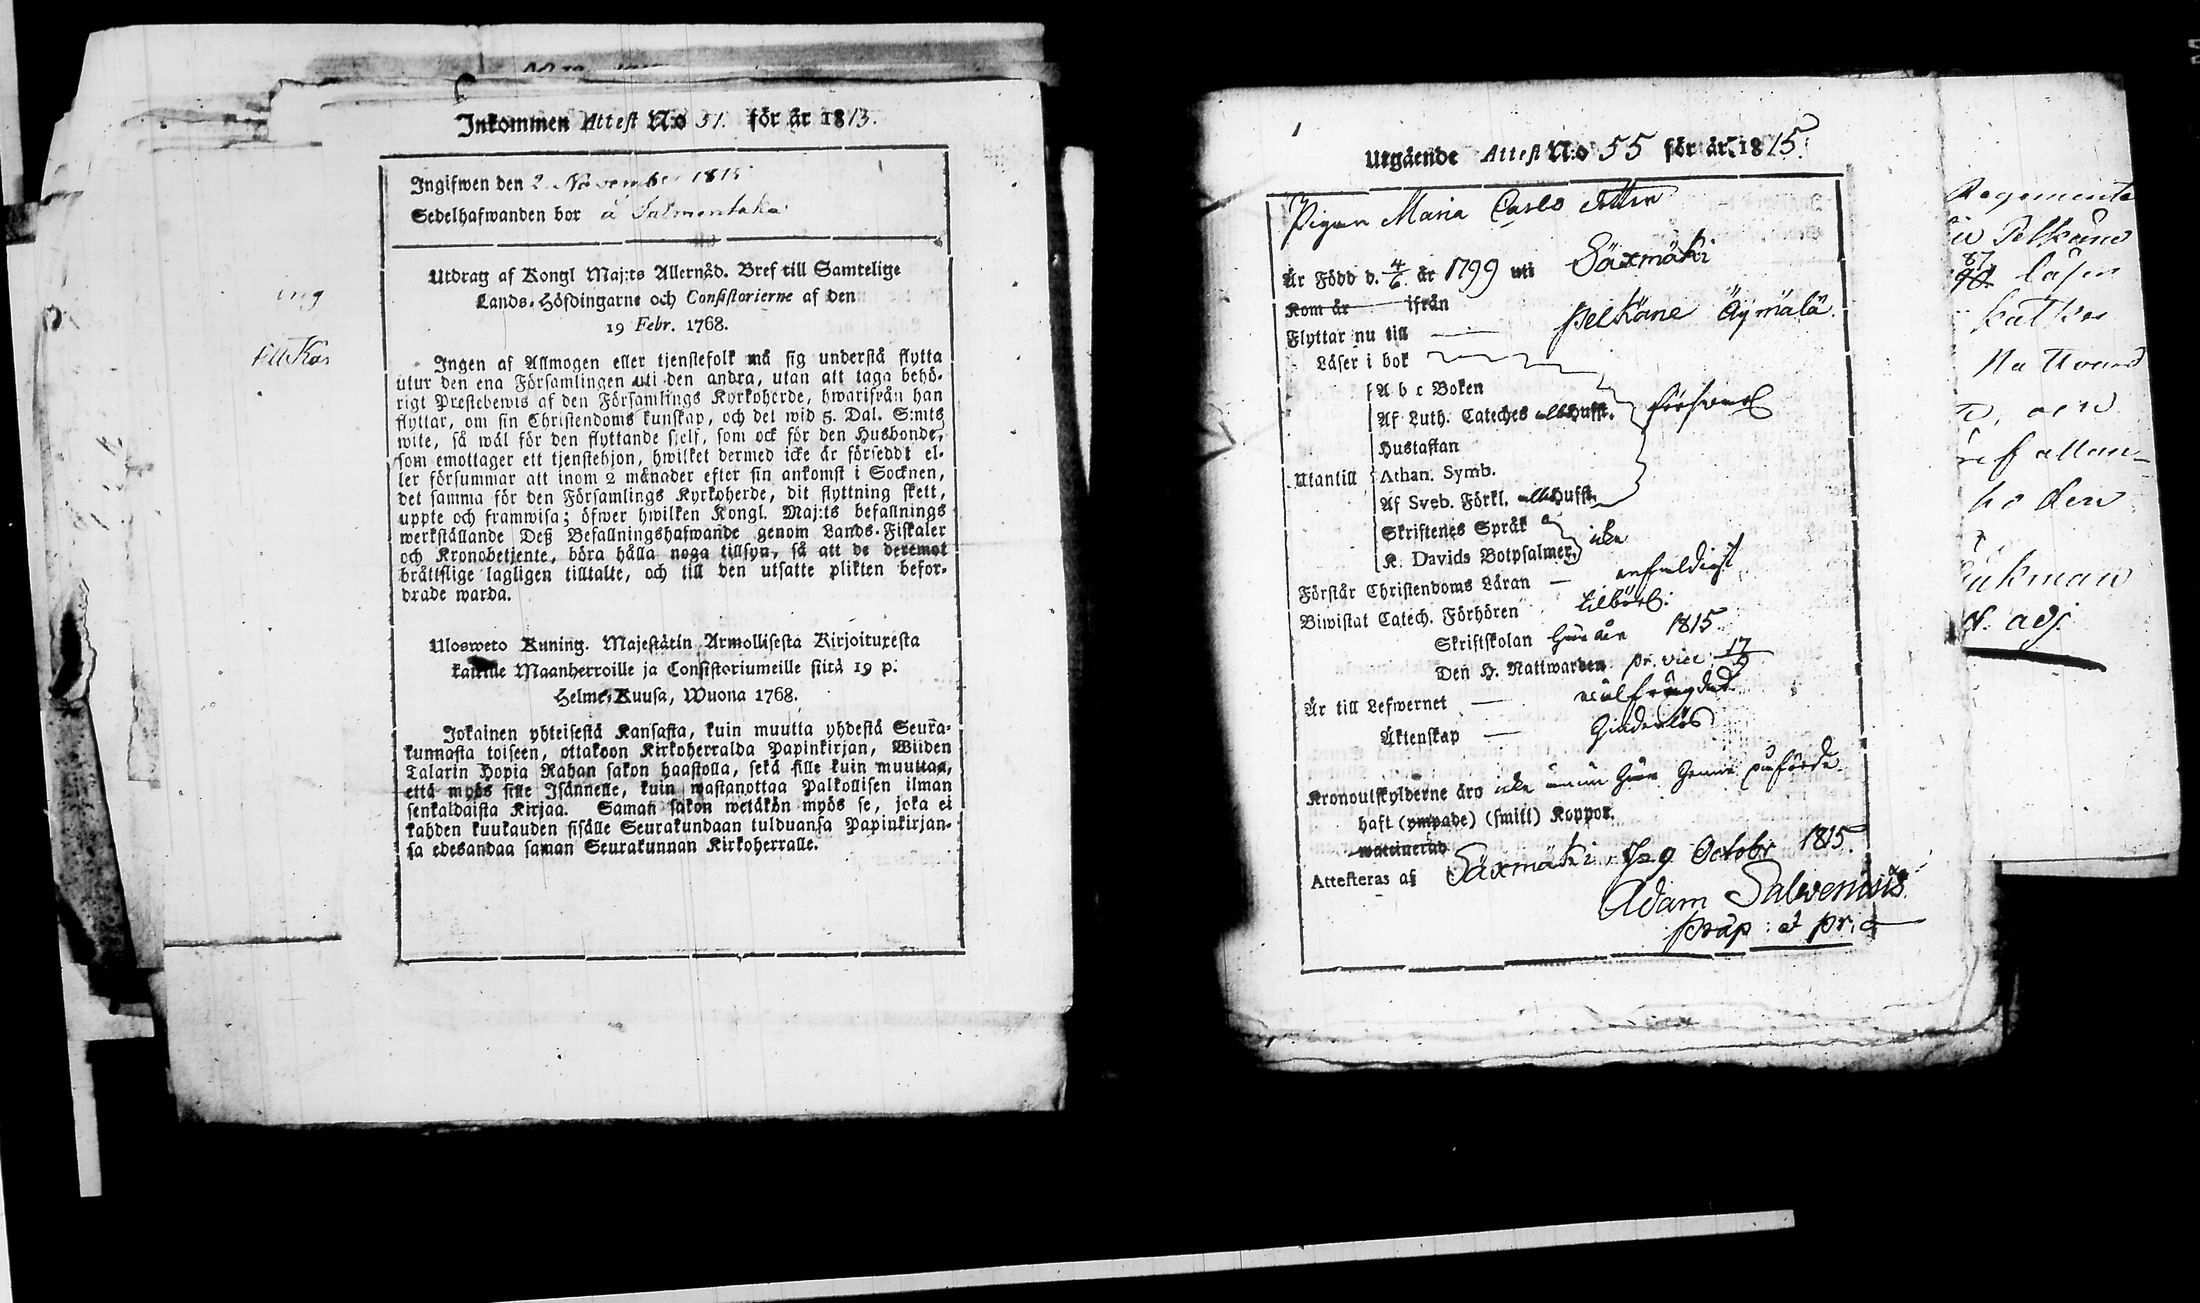 ing
till Kar
Inkommen Attest N:o 51. för år 1813.
Ingifwen den 2 November 1815
Sedelhafwanden bor å Salmentaka
Utdrag af Kongl Maj:ts Allernåd. Bref till Samtelige
Lands-Höfdingarne och Consistorierne af den
19 Febr. 1768.
Ingen af Allmogen eller tjenstefolk må sig understå flytta
utur den ena Församlingen uti den andra, utan att taga behö-
rigt Prestebewis af den Församlings Kyrkoherde, hwarifrån han
flyttar, om sin Christendoms kunskap, och det wid 5. Dal. S:mts
wite, så wäl för den flyttande sjelf, som ock för den Husbonde,
som emottager ett tjenstehjon, hwilket dermed icke är försedt el-
ler försummar att inom 2 månader efter sin ankomst i Socknen,
det samma för den Församlings Kyrkoherde, dit flyttning skett,
uppte och framwisa; öfwer hwilken Kongl. Maj:ts befallnings
werkställande Deß Befallningshafwande genom Lands-Fiskaler
och Kronobetjente, böra hålla noga tillsyn, så att de deremot
bråttslige lagligen tilltalte, och till den utsatte plikten befor-
drade warda.
Ulosweto Kuning. Majestätin Armollisesta Kirjoituxesta
kaikille Maanherroille ja Consistoriumeille siitä 19 p:
Helme-Kuusa, Wuona 1768.
Jokainen yhteisestä Kansasta, kuin muutta yhdestä Seura-
kunnasta toiseen, ottakoon Kirkoherralda Papinkirjan, Wiiden
Talarin Hopia Rahan sakon haastolla, sekä sille kuin muuttaa,
että myös sille Isännelle, kuin wastanottaa Palkollisen ilman
senkaldaista Kirjaa. Saman sakon wetäkön myös se, joka ei
kahden kuukauden sisälle Seurakundaan tulduansa Papinkirjan-
sa edesandaa saman Seurakunnan Kirkoherralle.
Utgående Attest N:o 55 för år 1815.
Pigan Maria Carls dotter
Är Född d. 4/6 år 1799 uti Säxmäki
Kom år ifrån
Flyttar nu till Pelkäne Äymälä
Läser i bok
A b c Boken
Af Luth. Cateches utt Husfl. försvarl
Hustaflan
Utantill Athan. Symb.
Af Sveb. Förkl. utt Husfl.
Skriftenes Språk
K. Davids Botpsalmer icke
Förstår Christendoms Läran enfaldigt
Biwistat Catech. Förhören tilbörl:
Skriftskolan 1815
Den H. Nattwarden pr. vice 17/9
Är till Lefwernet välfrägdad
Äktenskap hinderlös
Kronoutskylderne äro icke
haft (ympade) (smitt) Koppor.
waccinerad
Attesteras af Säxmäki d. 29 Octobr 1815.
Adam Salvenius
Präp: et pr:
Regemente
Pelkäne
87
läsen
kat
Nattvard
och
allan-
ho den
ukman
adj.